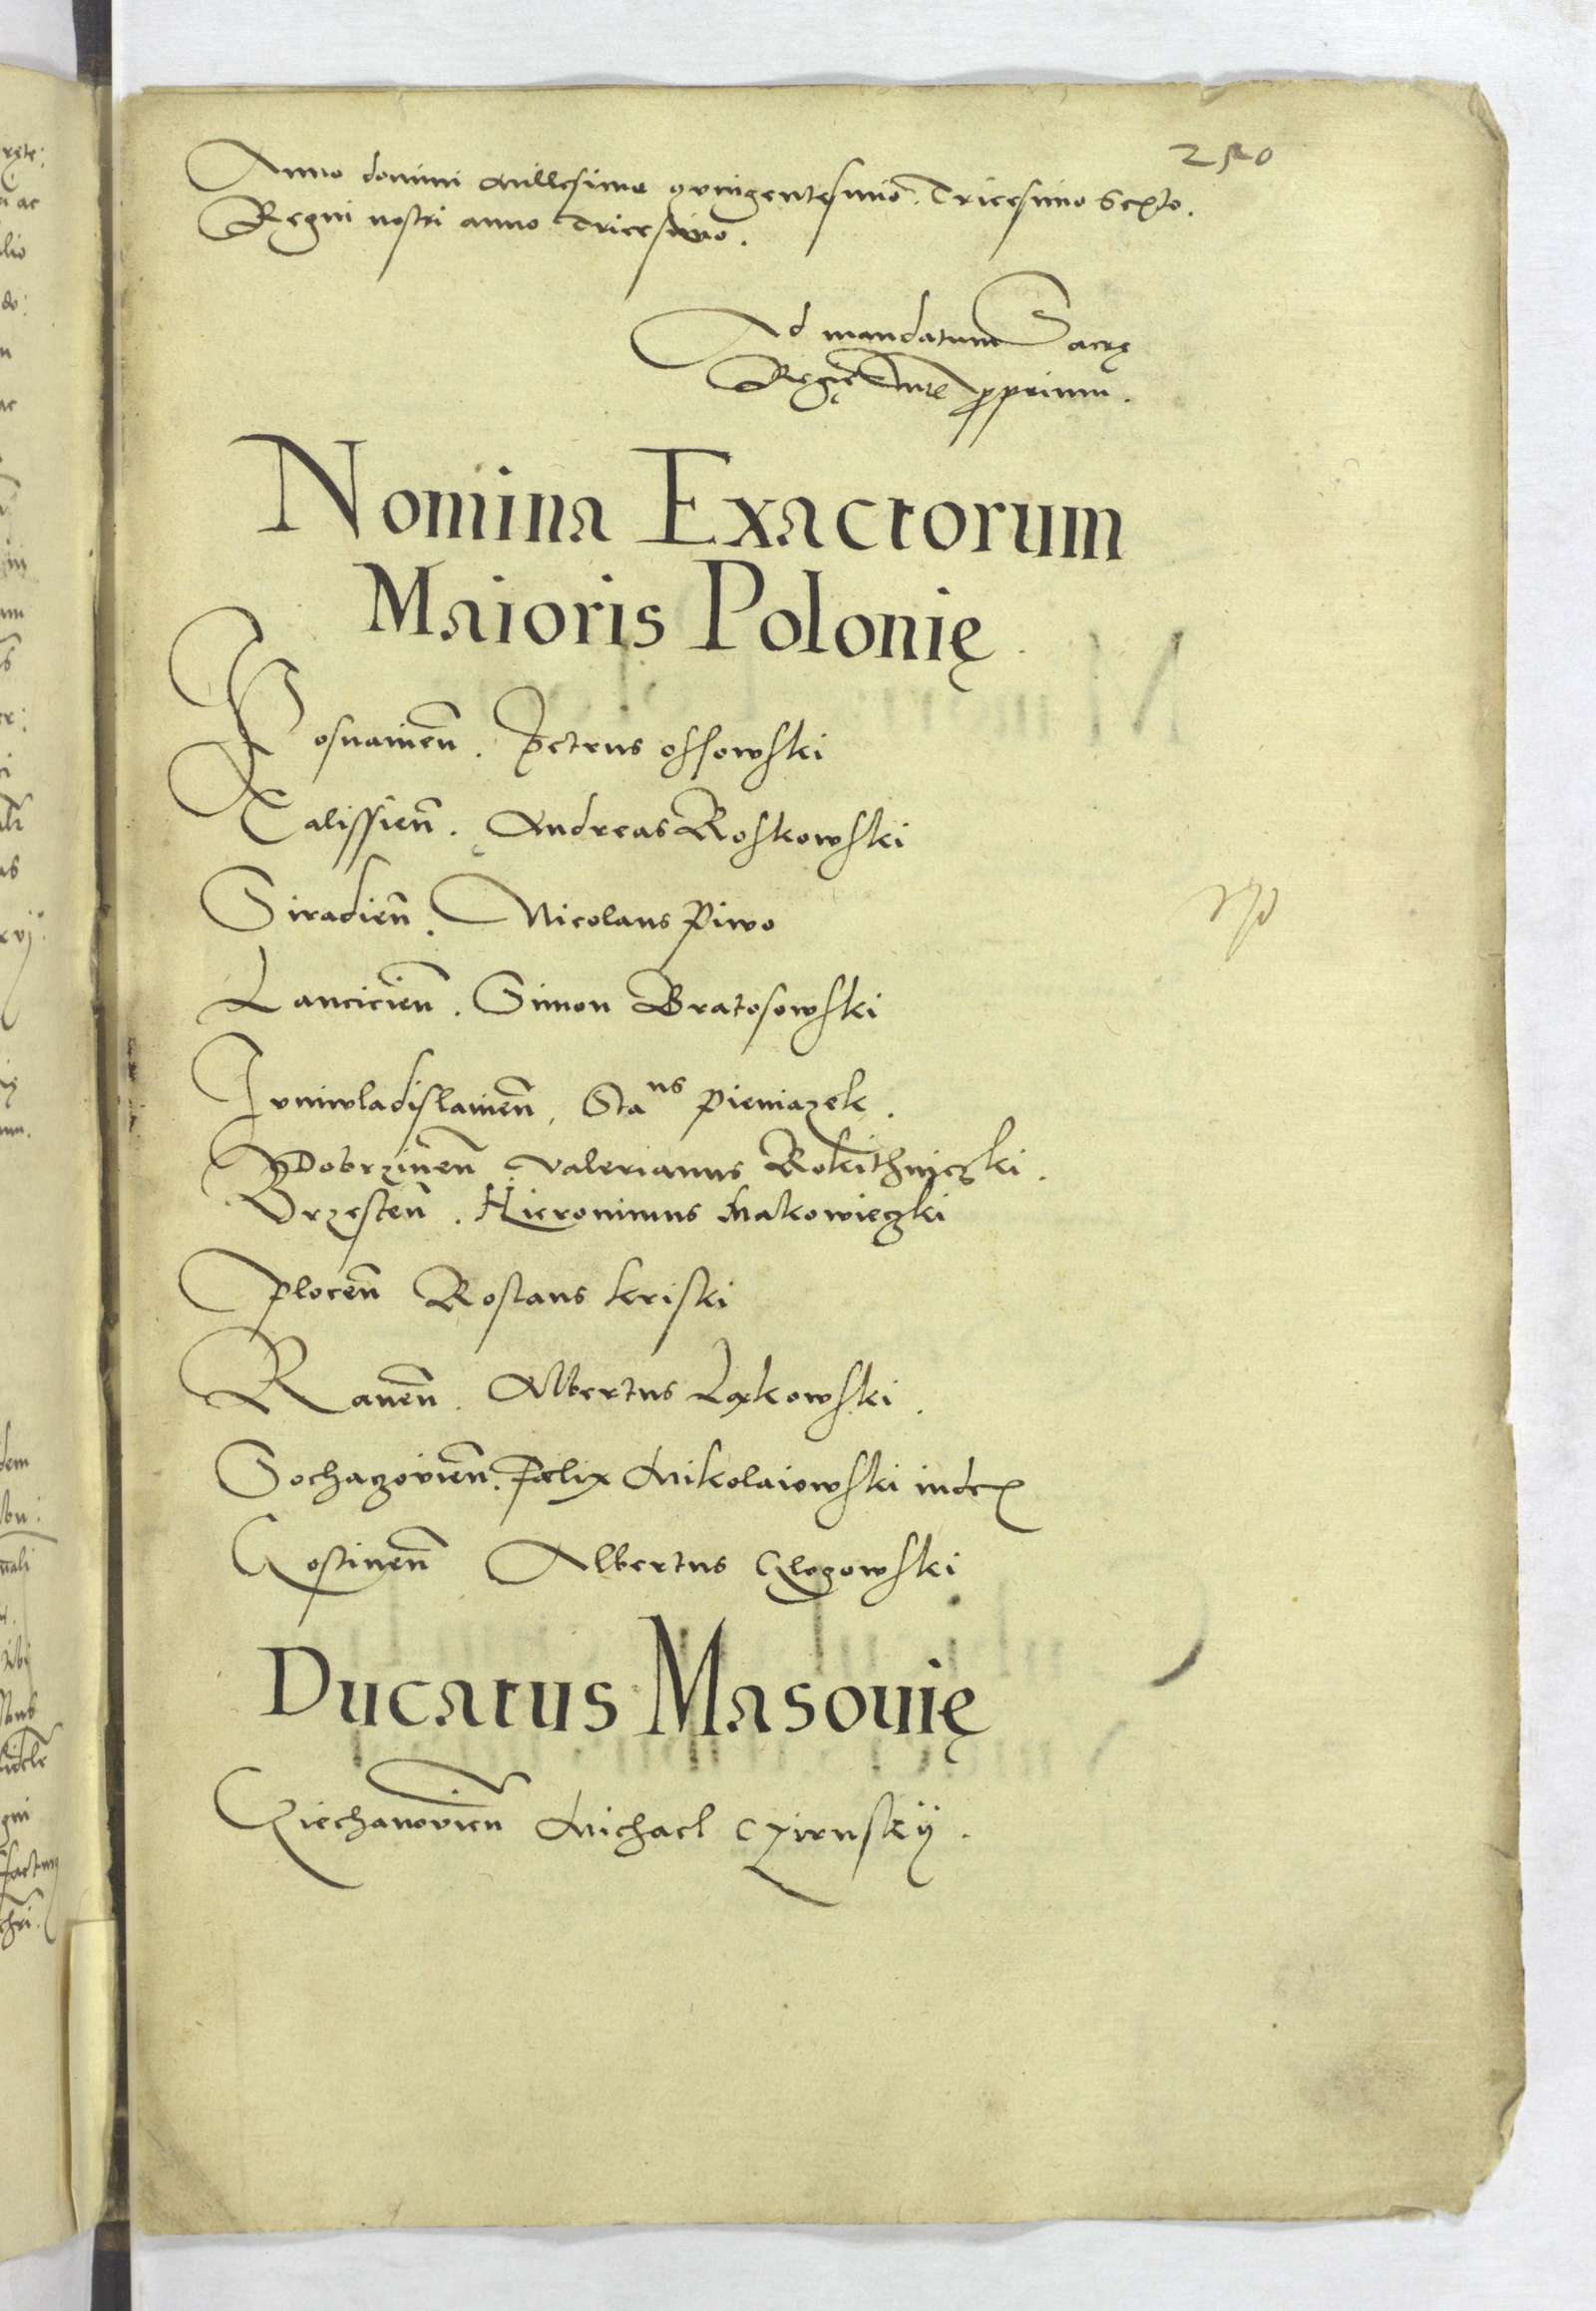 250
Anno domini Millesimo quingentesimo Tricesimo Sexto.
Regni nostri anno Tricesimo.
Ad mandatum Sacrę
Regię proprium.
Nomina Exactorum
Maioris Polonię
Posnanień. Petrus ossowski
Calissień. Andreas Roskowski
Siradień. Nicolaus Piwo
Lancicień. Simon Bratosowski
Iuniwladislauień. Stans Pieniazek.
Dobrzineń. Valerianus Rokithniczki.
Brzesteń. Hieronimus Makowieczki
Ploceń Rostaus kriski
Raueń. Albertus Ląkowski.
Sochazovień. Fælix Mikolaiowski iudex
Gostineń Albertus Glogowski
Ducatus Masouię
Cziechanovień Michael Czirnskÿ.